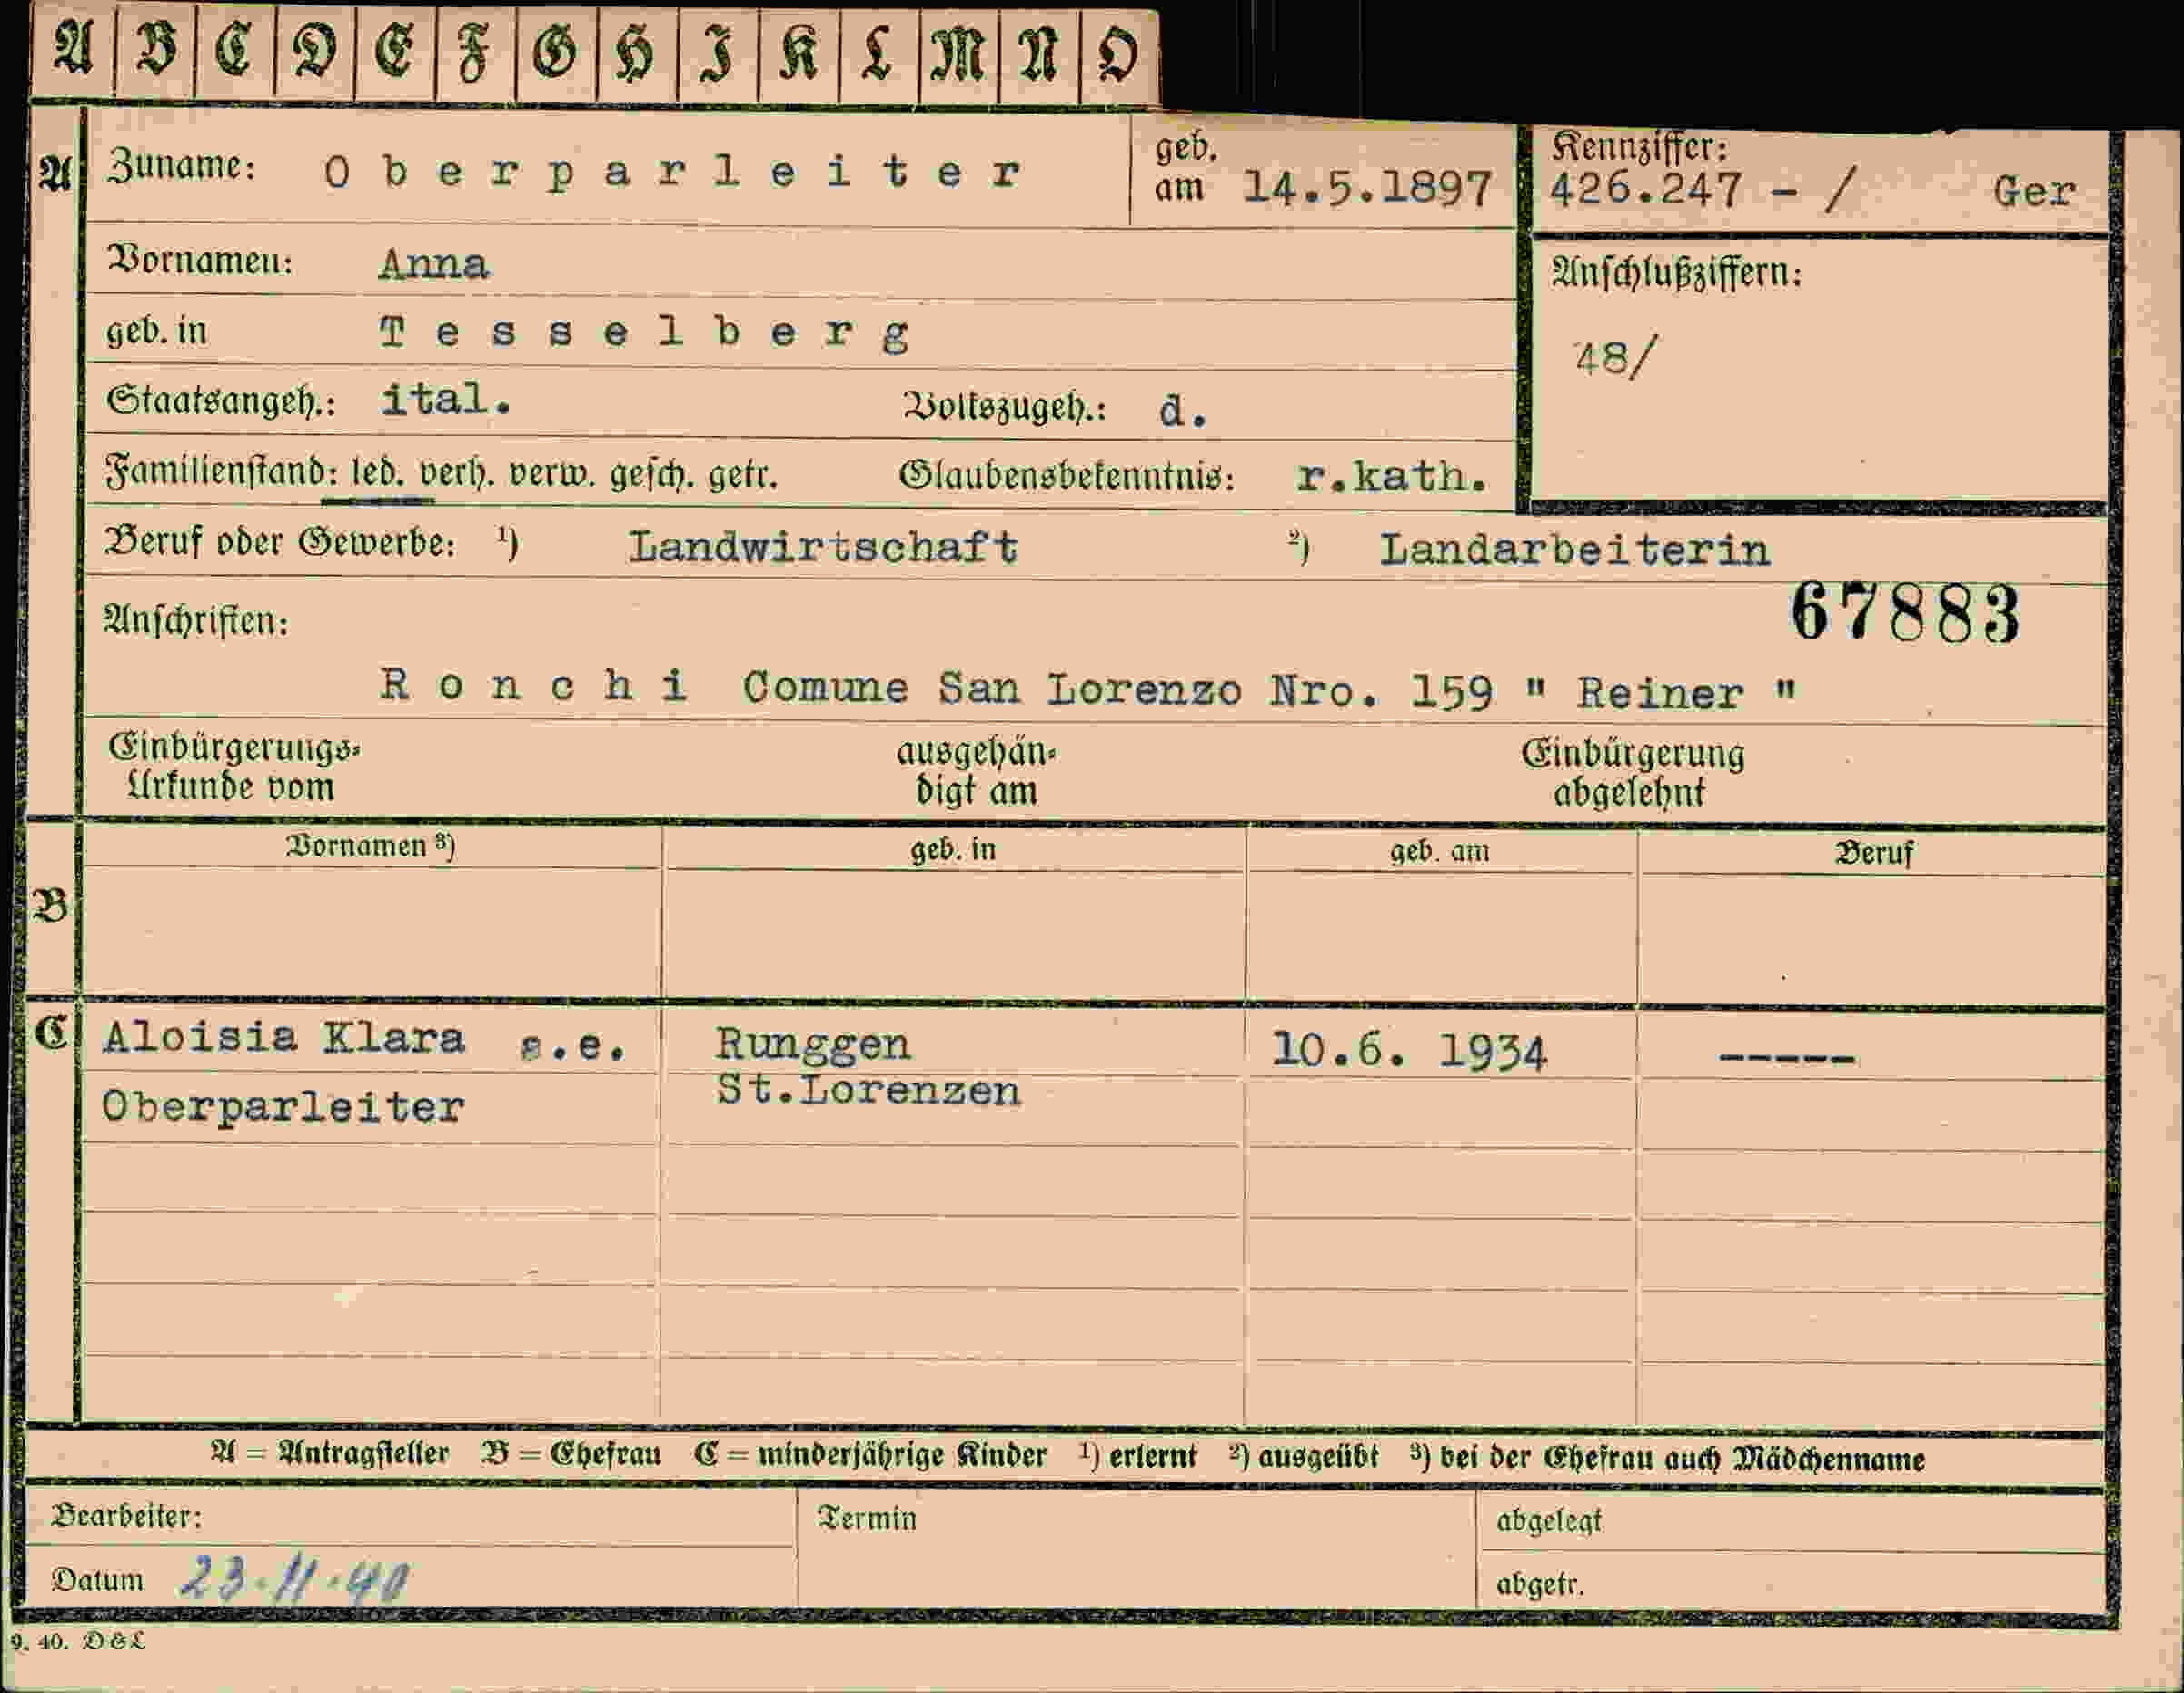 A B C D E F G H I K L M N O
A Zuname: Oberparleiter geb. am 14.5.1897 Kennziffer: 426.247 - / Ger
Vornamen: Anna
Anschlußziffern:
geb. in Tesselberg
48/
Staatsangeh.: ital. Volkszugeh.: d.
Familienstand: led. verh. verw. gesch. getr. Glaubensbekenntnis: r.kath.
Beruf oder Gewerbe: 1) Landwirtschaft 2) Landarbeiterin
67883
Anschriften:
Ronchi Comune San Lorenzo Nro. 159 " Reiner "
Einbürgerungs- ausgehän- Einbürgerung
Urkunde vom digt am abgelehnt
Vornamen 3) geb. in geb. am Beruf
B
C Aloisia Klara s.e. Runggen 10.6. 1934 -----
St.Lorenzen
Oberparleiter
A = Antragsteller B = Ehefrau C = minderjährige Kinder 1) erlernt 2) ausgeübt 3) bei der Ehefrau auch Mädchenname
Bearbeiter: Termin abgelegt
Datum 23.11.40 abgetr.
9. 40. D & L